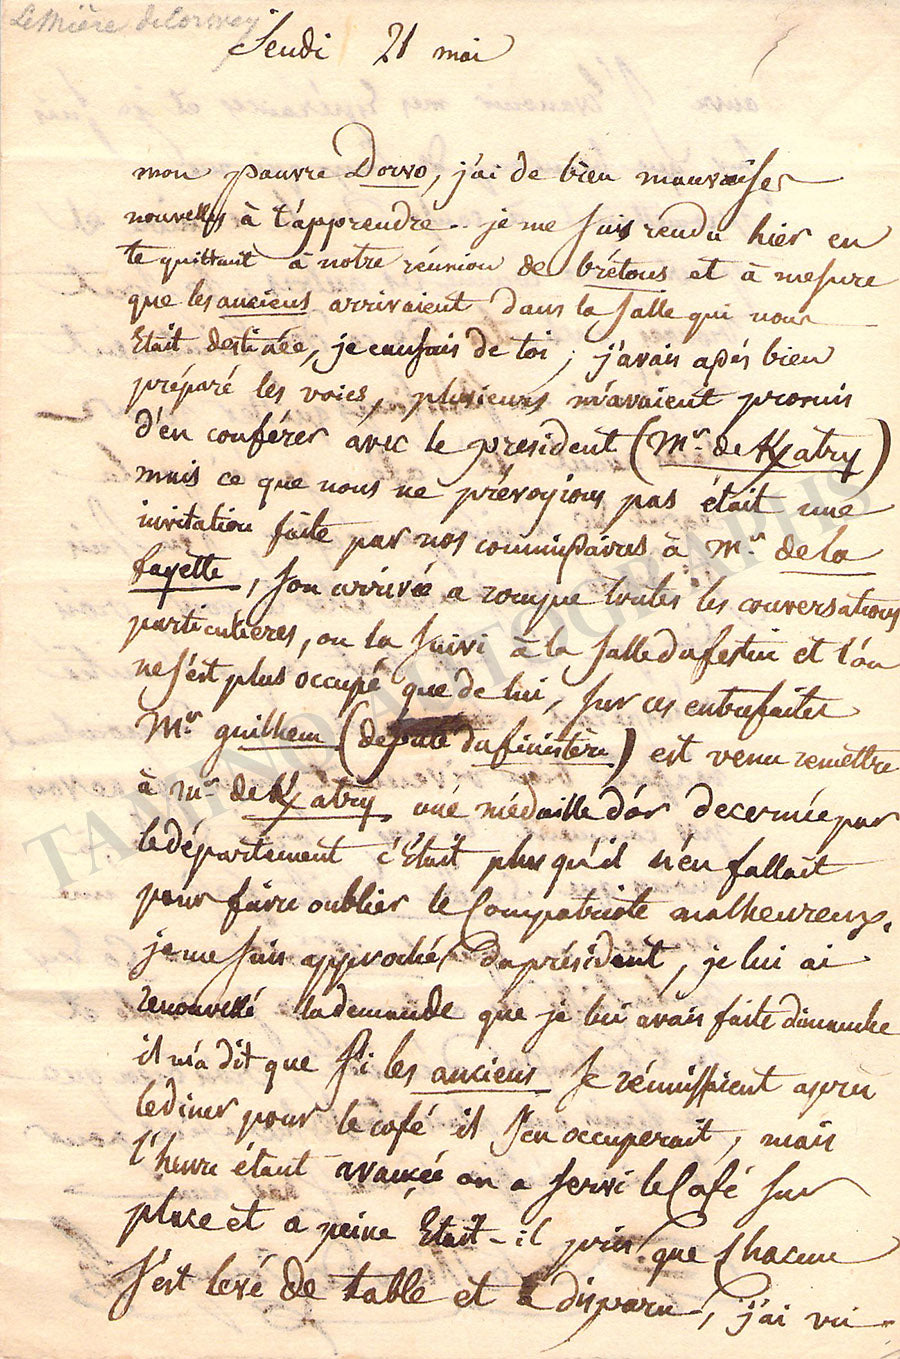 Le Mière de Corvey
Jeudi 21 mai
mon pauvre Dorvo, j'ai de bien mauvaises
nouvelles à t'apprendre.. je me suis rendu hier en
te quittant à notre réunion de brétons et à mesure
que les anciens arrivaient dans la salle qui nous
Etait destinée, je causais de toi, j'avais assés bien
préparé les voies, plusieurs m'avaient promis
d'en conférer avec le president (Mr. de Katry)
mais ce que nous ne prévoyions pas était une
invitation faite par nos commissaires à Mr. de la
fayette, son arrivée a rompue toutes les conversations
particulieres, on la suivi à la salle du festin et l'on
ne s'est plus occupé que de lui, sur ces entrefaites
Mr. guilhem (député du finistère) est venu remettre
à mr. de Katry une médaille d'or decernée par
le département c'Etait plus qu'il n'en fallait
pour faire oublier le Compatriote malheureux.
je me suis approché du président, je lui ai
renouvellé la demande que je lui avais faite dimanche
il m'a dit que si les anciens se réunissaient après
le diner pour le café il s'en occuperait, mais
l'heure étant avancée on a servi le Café sur
place et a peine Etait-il pris que chacun
s'est levé de table et a disparu, j'ai vu
TAMINO AUTOGRAPHS